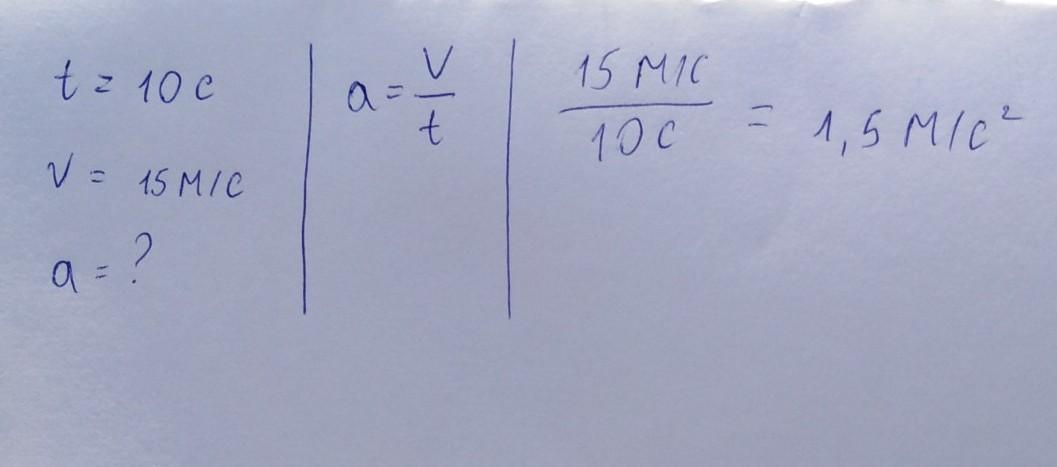 t = 10 с
V = 15 м/с
a = ?
a = V/t
15 м/с / 10 с = 1,5 м/с²